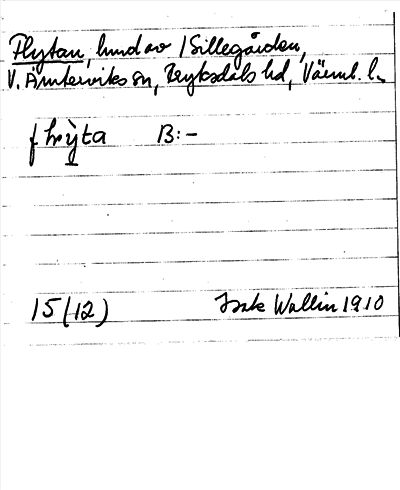 Flytan, hmd av 1 Sillegården,
V. Ämterviks sn, Fryksdals hd, Värml. l.
B:-
15(12) Isak Wallin 1910